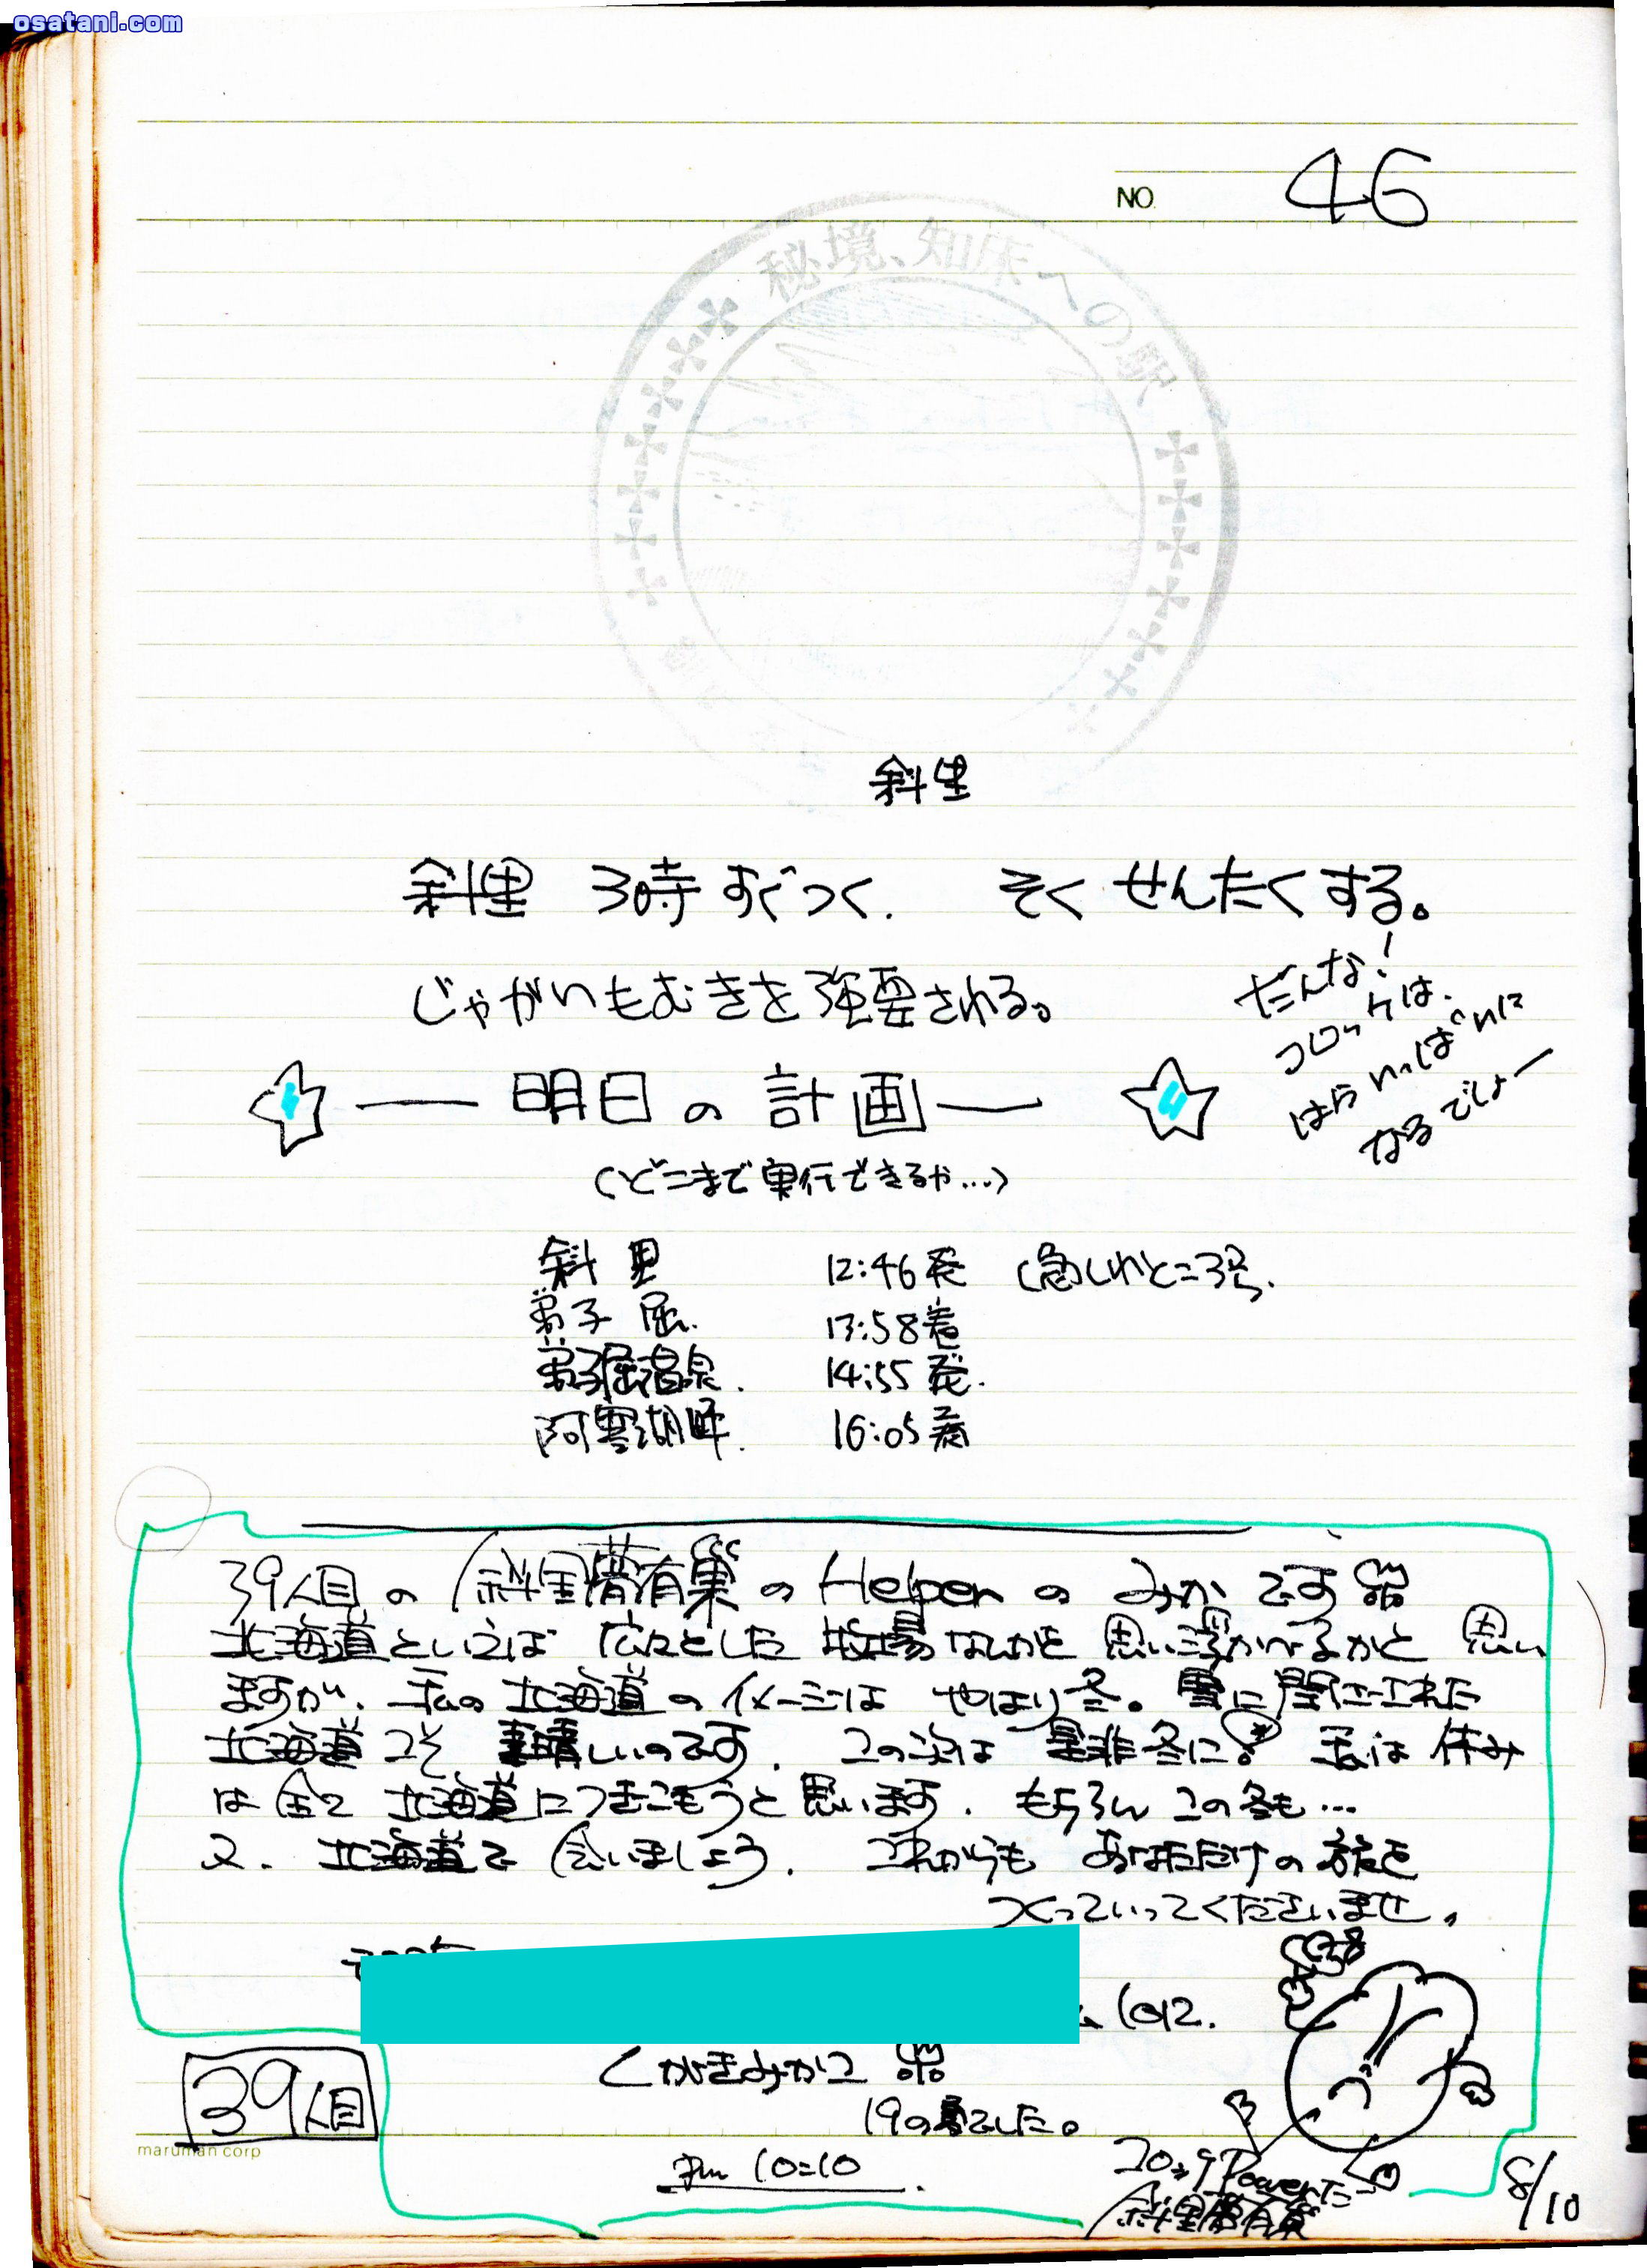 osatani.com
NO. 46
秘境、知床への駅
斜里
斜里 3時すぎつく. そく せんたくする。
じゃがいもむきを強要される。
だんな!
コロッケは.
はらいっぱいに
なるでしょー
明日の計画
(どこまで実行できるや…)
斜里 12:46発 (急)しれとこ3号.
弟子屈. 13:58着
弟子屈温泉. 14:55発.
阿寒湖畔. 16:05着
39人目の 斜里夢有巣の Helperの みかです
北海道といえば 広々とした 牧場なんかを 思い浮かべるかと 思い
ますが、私の 北海道の イメージは やはり冬。雪に閉ざされた
北海道こそ 素晴しいのです. この次は 是非冬に。 私は 休み
は全て 北海道につぎこもうと思います. もちろん この冬も…
又. 北海道で 会いましょう. これからも あなただけの 旅を
つくっていってくださいませ.
1012.
くがきみかこ
19の夏でした。
39人目
maruman corp
Pm 10=10
Powerだ
斜里夢有巣
8/10